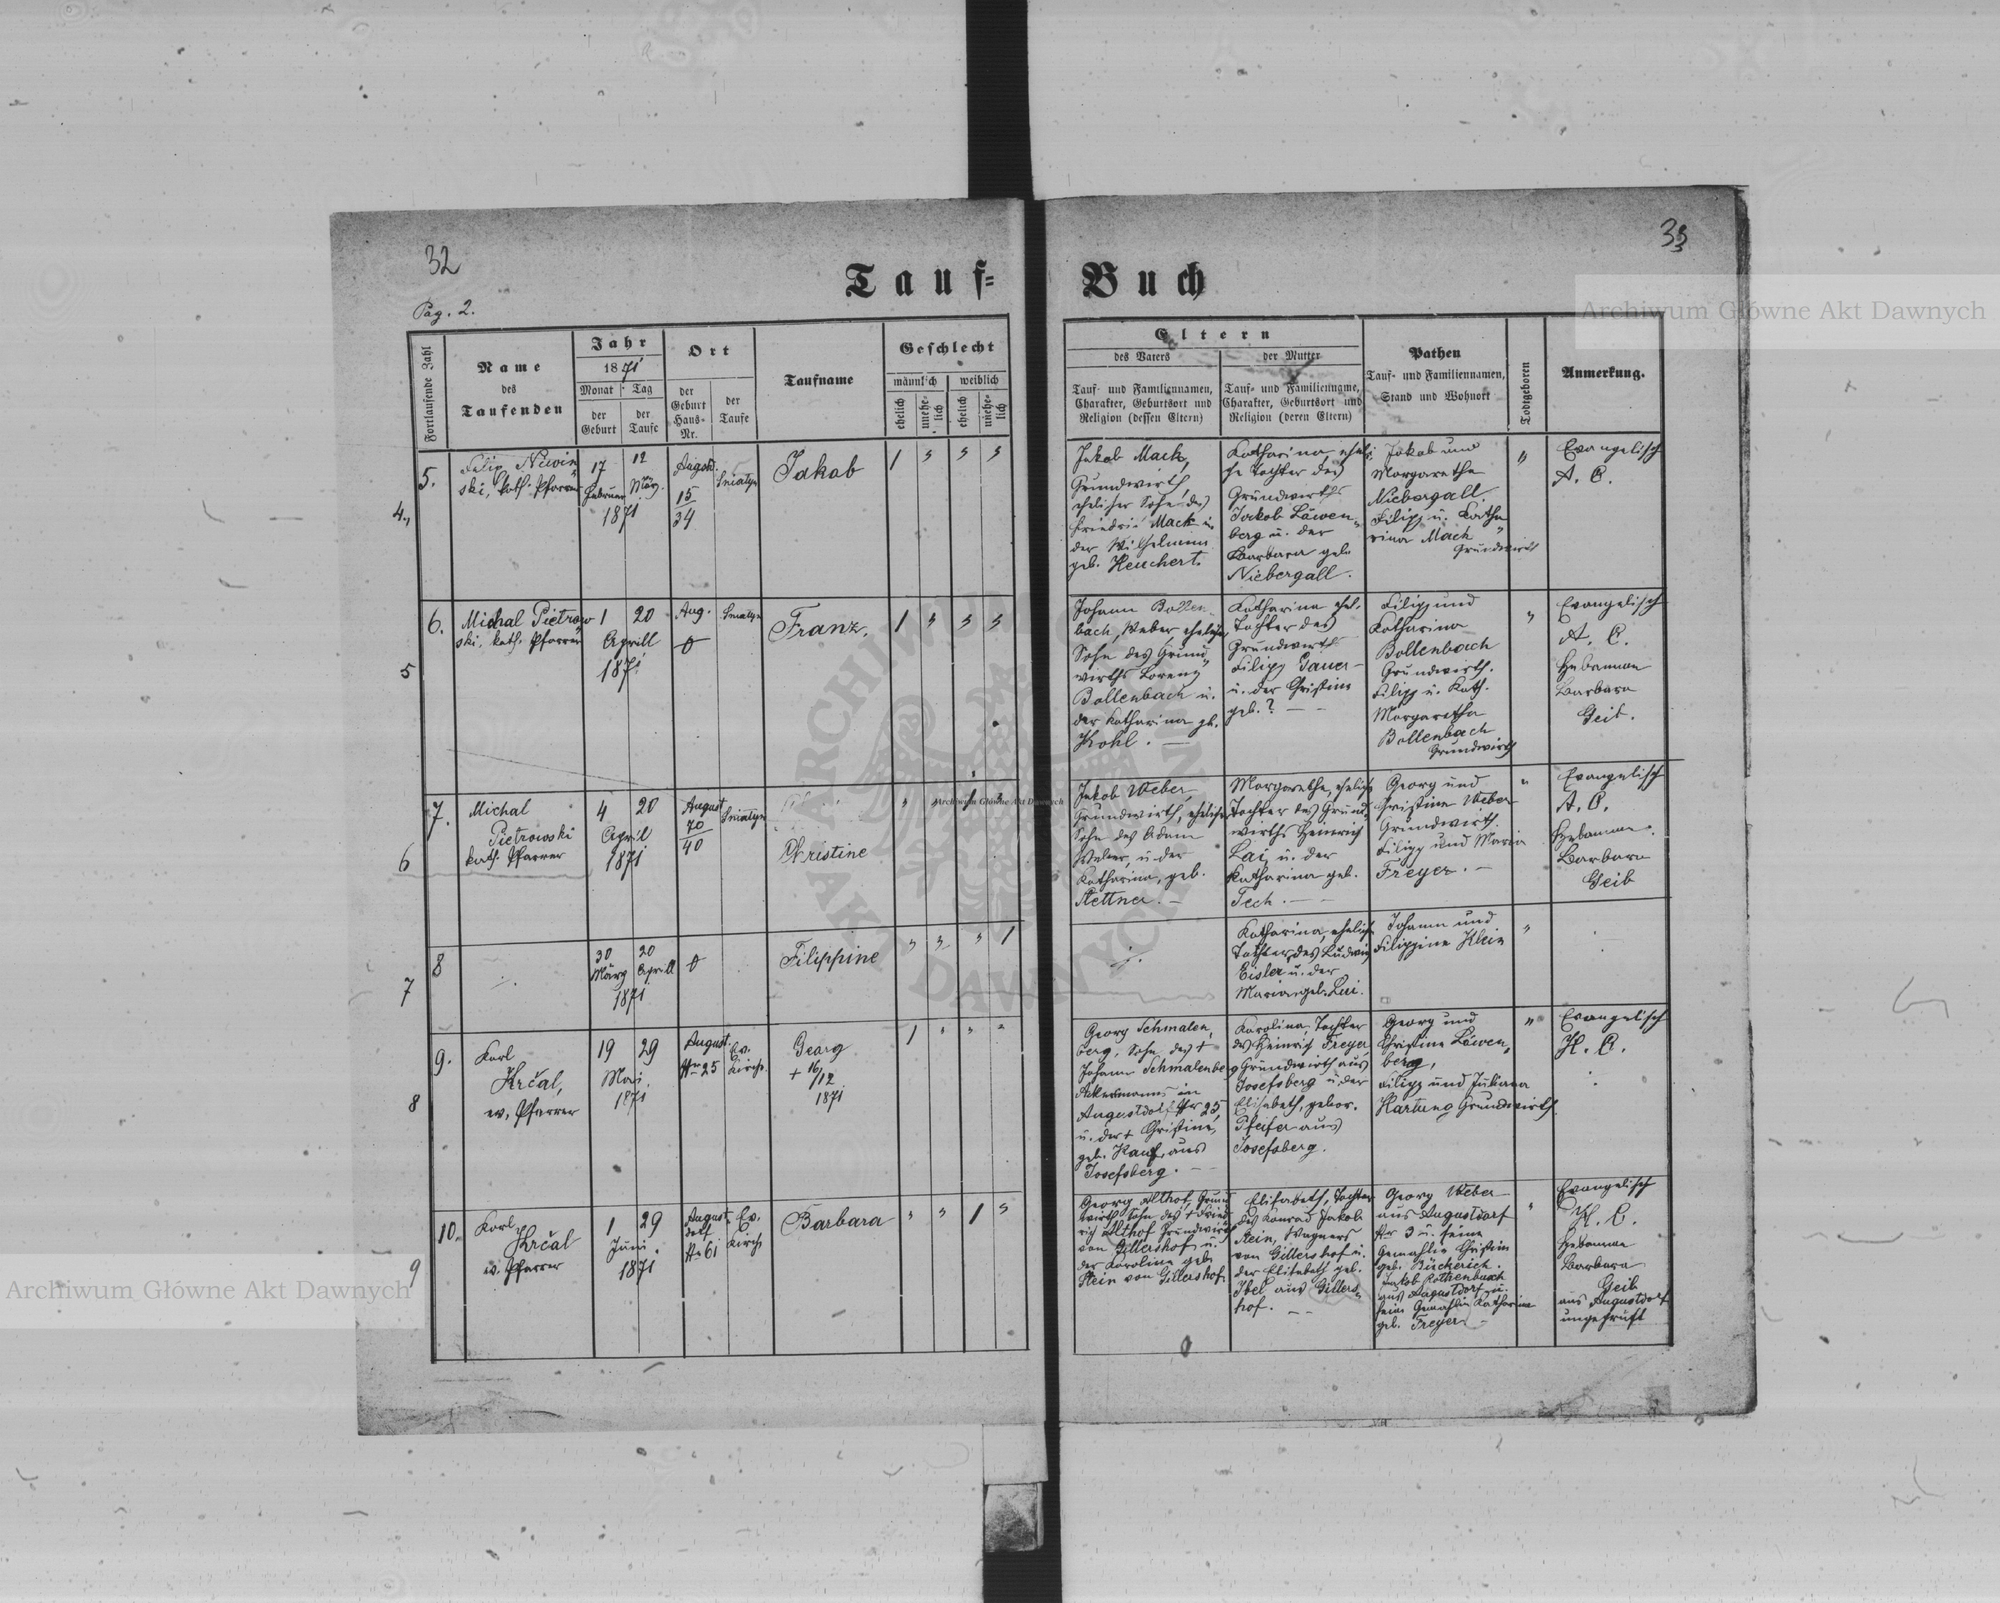 32
33
Tauf-
Buch
Pag. 2.
Fortlaufende Zahl
Name
des
Taufenden
Jahr
1871
Monat
Tag
der
Geburt
der
Taufe
Ort
der
Geburt
Haus-
Nr.
der
Taufe
Taufname
Geschlecht
männlich
weiblich
ehelich
unehe-
lich
ehelich
unehe-
lich
Eltern
des Vaters
der Mutter
Tauf- und Familiennamen,
Charakter, Geburtsort und
Religion (dessen Eltern)
Tauf- und Familienname,
Charakter, Geburtsort und
Religion (deren Eltern)
Pathen
Tauf- und Familiennamen,
Stand und Wohnort
Todtgeboren
Anmerkung.
4.,
5.
Filip Niwin
ski, kath. Pfarrer
17
Februar
12
März.
1871
August.
15
34
Sniatyn
Jakob
1
Jakob Mack,
Grundwirth,
ehelicher Sohn des
Friedrich Mack u.
der Wilhelmine
geb. Heuchert.
Katharina eheli-
che Tochter des
Grundwirths
Jakob Löwen-
berg u. der
Barbara geb.
Niebergall.
Jakob und
Margarethe
Niebergall.
Filipp u. Katha
rina Mack
Grundwirth
"
Evangelisch
A. C.
5
6.
Michal Pietrow
ski, kath. Pfarrer
1
20
Aprill
1871
Aug.
Sniatyn
Franz.
1
Johann Bollen-
bach, Weber, ehelicher
Sohn des Grund
wirths Lorenz
Bollenbach u.
der Katharina gb.
Kohl. —
Katharina ehel.
Tochter des
Grundwirth
Filipp Gauer
u. der Christine
geb. ? — —
Filipp und
Katharina
Bollenbach
Grundwirth.
Filipp u. Kath.
Margaretha
Bollenbach
Grundwirth
"
Evangelisch
A. C.
Hebamme
Barbara
Geib.
6
7.
Michal
Pietrowski
kath. Pfarrer
4
20
April
1871
August
70
40
Sniatyn
Christine
1
Jakob Weber,
Grundwirth, ehelicher
Sohn des Adam
Weber, u. der
Katharina, geb.
Stettner. —
Margarethe, eheliche
Tochter des Grund
wirths Heinrich
Lai, u. der
Katharina geb.
Tech. — —
Georg und
Christine Weber
Grundwirth.
Filipp und Maria
Freyer. —
"
Evangelisch
A. C.
Hebamme.
Barbara
Geib
7
8
30
März
20
Aprill
1871
Filippine
1
Katharina, eheliche
Tochter, des Ludwig
Eisler u. der
Maria geb. Lai.
Johann und
Filippine Klein
"
8
9.
Karl
Krčal,
ev. Pfarrer
19
29
Mai.
1871
August.
Nr 25
Ev.
Kirche
Georg
+ 16/12
1871
1
Georg Schmalen,
berg, Sohn des +
Johann Schmalenberg
Ackersmanns in
Augustdorf Nr 25,
u. der + Christine,
geb. Kauf, aus
Josefsberg. —
Karolina, Tochter
des Heinrich Freyer,
Grundwirth aus
Josefsberg u. der
Elisabeth, gebor.
Pfeifer aus
Josefsberg.
Georg und
Christine Löwen,
berg,
Filipp und Juliana
Hartung Grundwirth
"
Evangelisch
H. C.
9
10.
Karl
Krčal
ev. Pfarrer
1
29
Juni.
1871
August
dorf
Nr 61
Ev.
Kirche
Barbara
1
Georg Althof, Grund
wirth, Sohn des + Fried
rich Althof Grundwirth
von Gillershof u.
der Karoline geb.
Stein von Gillershof.
Elisabeth, Tochter
des Konrad Jakob
Stein, Wagners
von Gillershof u.
der Elisabeth geb.
Ibel aus Gillers-
hof. — —
Georg Weber
aus Augustdorf
Nr 3 u. seine
Gemahlin Christine
geb. Bücherich.
Jakob Rothenbusch
aus Augustdorf u.
seine Gemahlin Katharina
geb. Freyer —
"
Evangelisch
H. C.
Hebamme
Barbara
Geib
aus Augustdorf
ungeprüft
Archiwum Główne Akt Dawnych
Archiwum Główne Akt Dawnych
Archiwum Główne Akt Dawnych